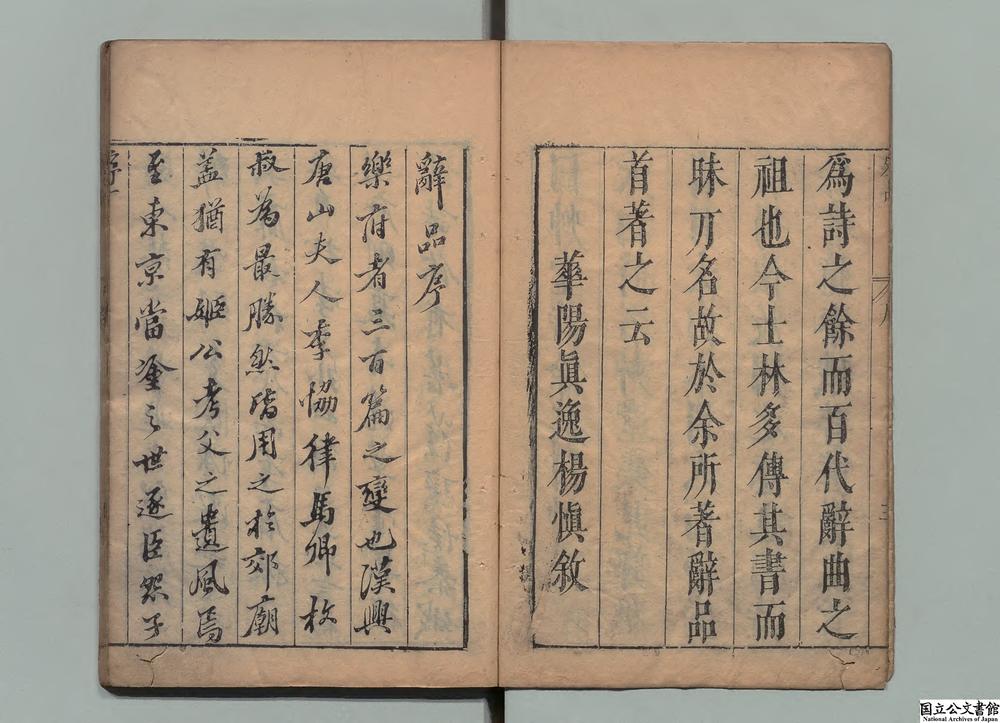 爲詩之餘而百代辭曲之
祖也今士林多傳其書而
昧刀名故於余所著辭品
首著之云
華陽眞逸楊愼敘
辭品序
樂府者三百篇之變也漢興
唐山夫人李協律馬卿枚
叔為最勝然皆用之於郊廟
盖猶有姬公考父之遺風焉
至東京當塗之世逐臣怨子
国立公文書館
National Archives of Japan